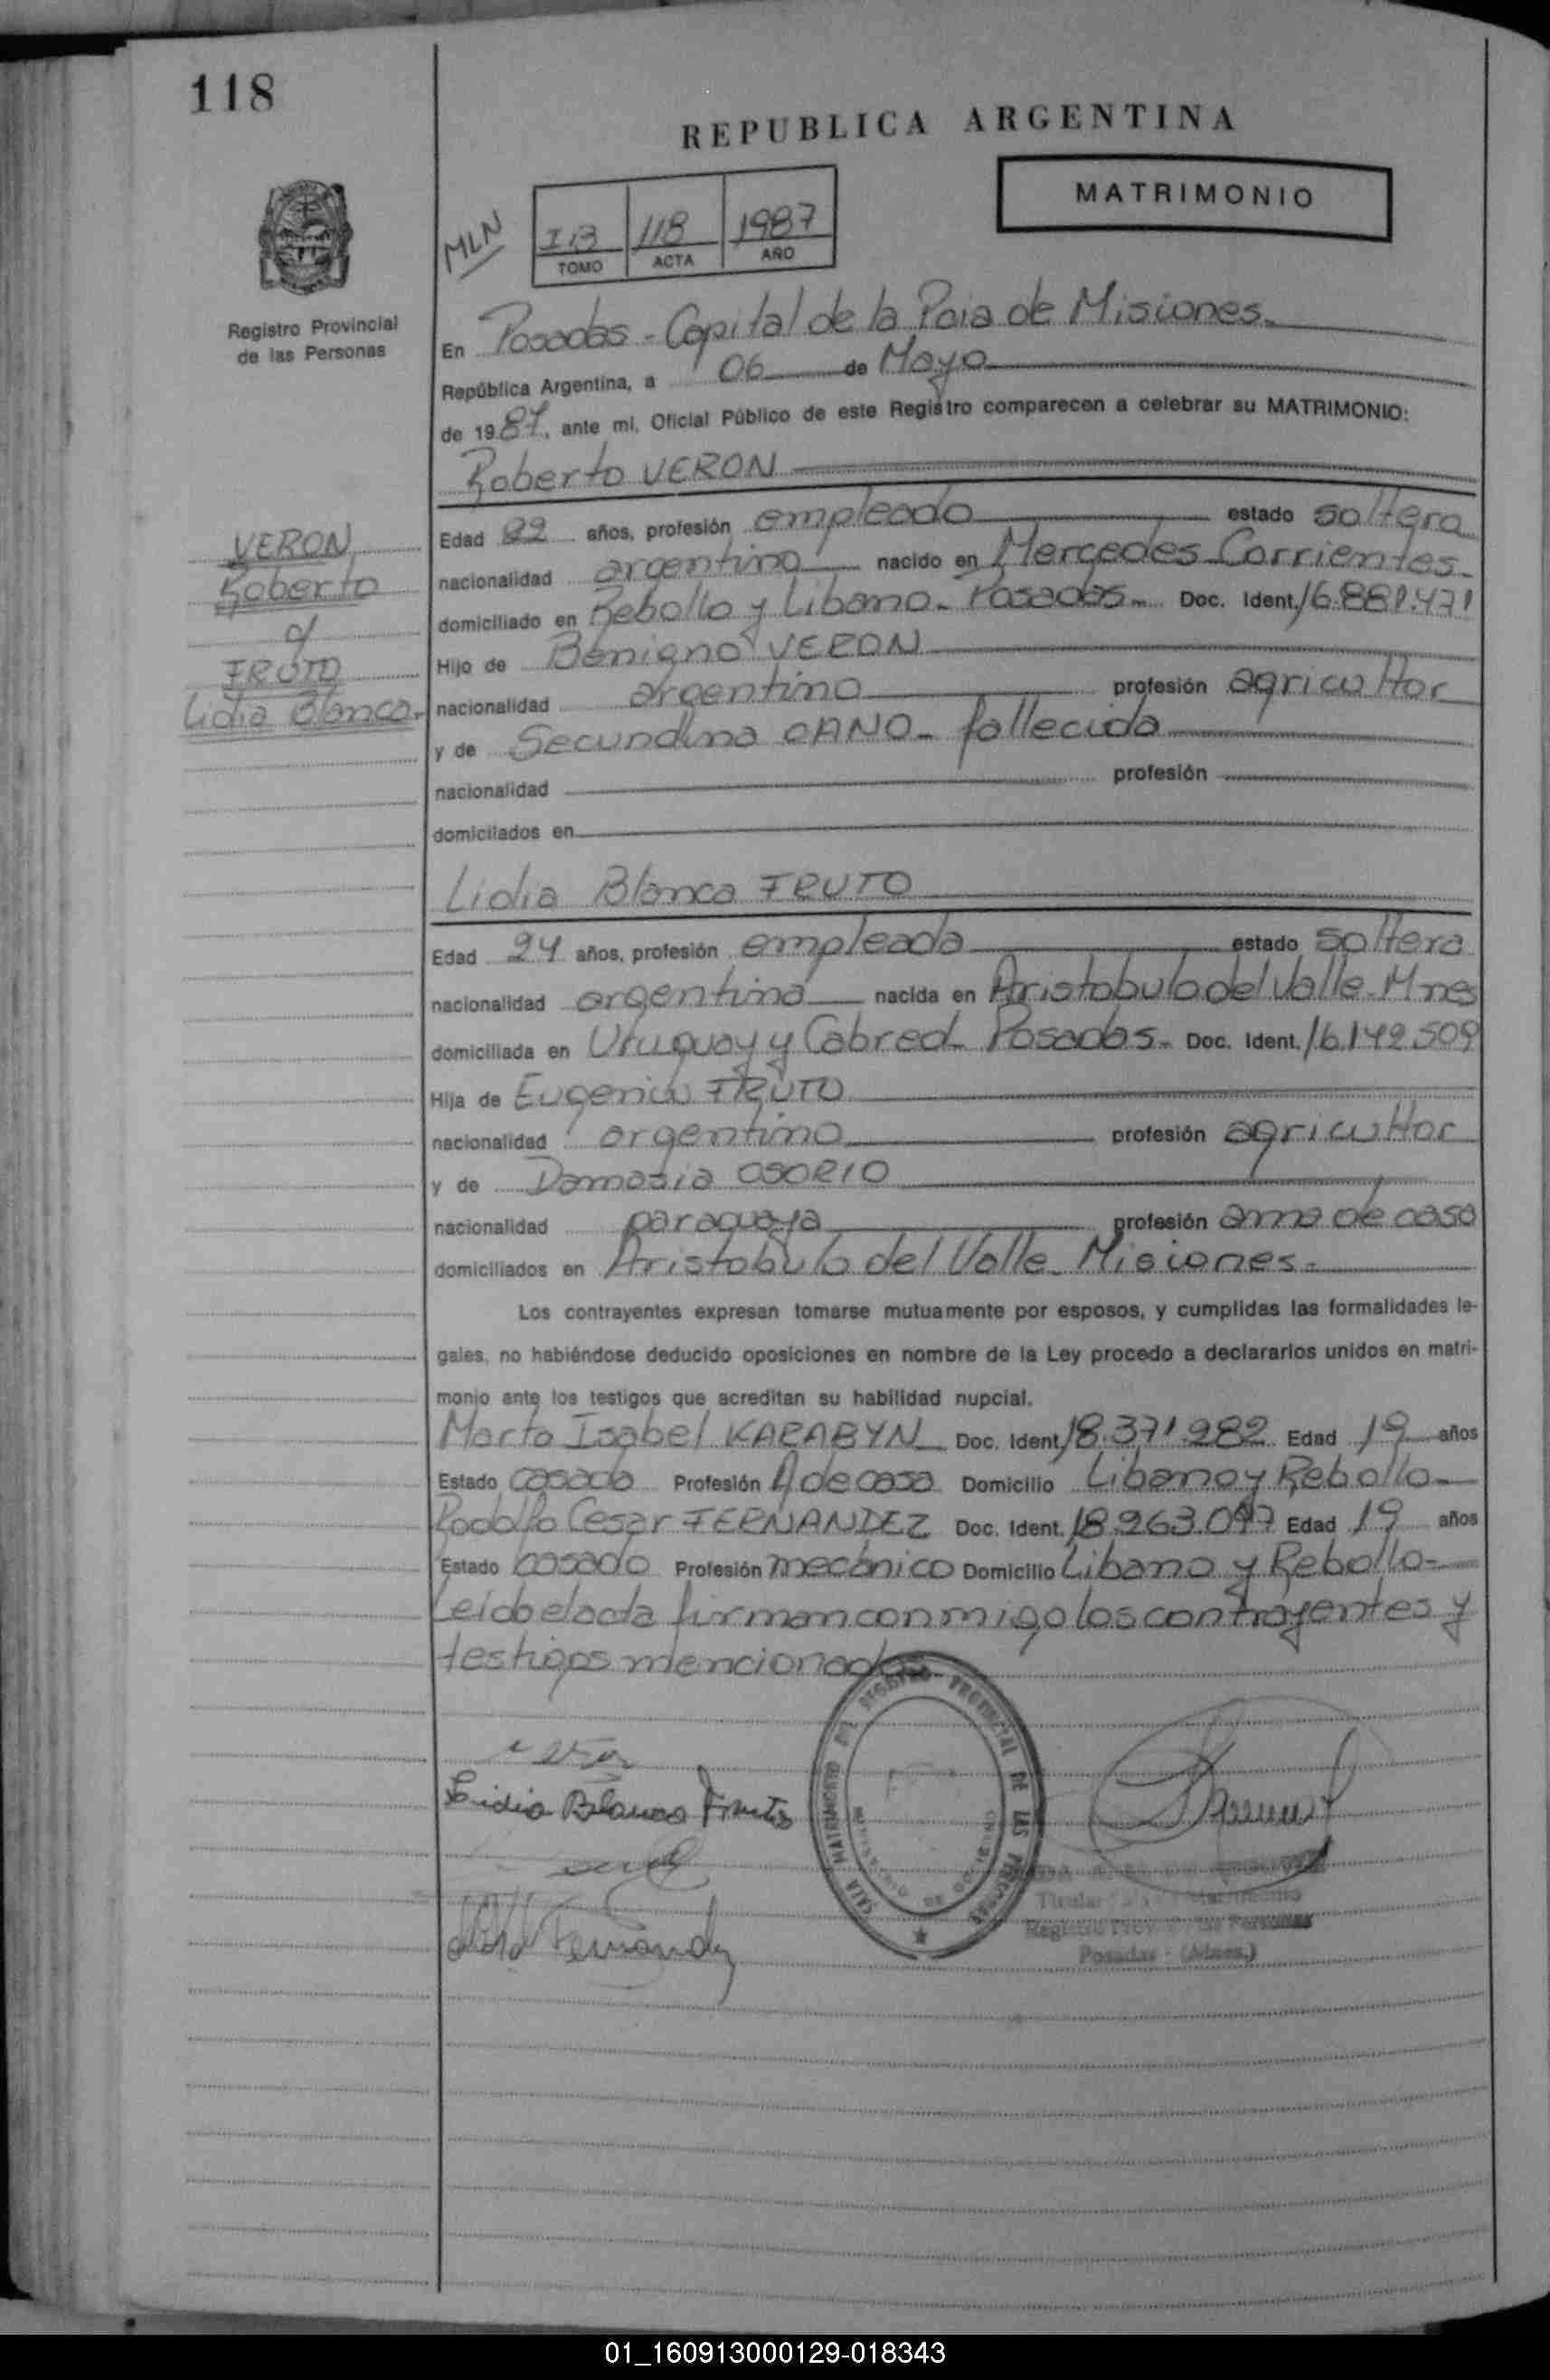 118
REPUBLICA ARGENTINA
MATRIMONIO
MLN
I.B 118 1987
TOMO ACTA AÑO
Registro Provincial
de las Personas
En Posadas - Capital de la Pcia de Misiones.
República Argentina, a 06 de Mayo
de 1987, ante mi, Oficial Público de este Registro comparecen a celebrar su MATRIMONIO:
Roberto VERON
VERON
Roberto
c/
FRUTO
Lidia Blanca.
Edad 22 años, profesión empleado estado soltero
nacionalidad argentino nacido en Mercedes Corrientes.
domiciliado en Rebollo y Libano. Posadas. Doc. Ident. 16.881.471
Hijo de Benigno VERON
nacionalidad argentino profesión agricultor
y de Secundina CANO. fallecida
nacionalidad profesión
domicilados en
Lidia Blanca FRUTO
Edad 24 años, profesión empleada estado soltera
nacionalidad argentina nacida en Aristobulo del Valle - Mnes
domiciliada en Uruguay y Cabred. Posadas. Doc. Ident. 16.142.509
Hija de Eugenio FRUTO
nacionalidad argentino profesión agricultor
y de Damasia OSORIO
nacionalidad paraguaya profesión ama de casa
domiciliados en Aristobulo del Valle. Misiones.
Los contrayentes expresan tomarse mutuamente por esposos, y cumplidas las formalidades le-
gales, no habiéndose deducido oposiciones en nombre de la Ley procedo a declararlos unidos en matri-
monio ante los testigos que acreditan su habilidad nupcial.
Marta Isabel KARABYN Doc. Ident. 18.371.982 Edad 19 años
Estado casada Profesión A de casa Domicilio Libano y Rebollo
Rodolfo Cesar FERNANDEZ Doc. Ident. 18.263.097 Edad 19 años
Estado casado Profesión mecánico Domicilio Libano y Rebollo
Leida el acta firman conmigo los contrayentes y
testigos mencionados
Lidia Blanca Fruto
SALA MATRIMONIO DEL REGISTRO PROVINCIAL DE LAS PERSONAS
Titular Matrimonio
Registro Prov. de las Personas
Posadas - (Mnes.)
01_160913000129-018343